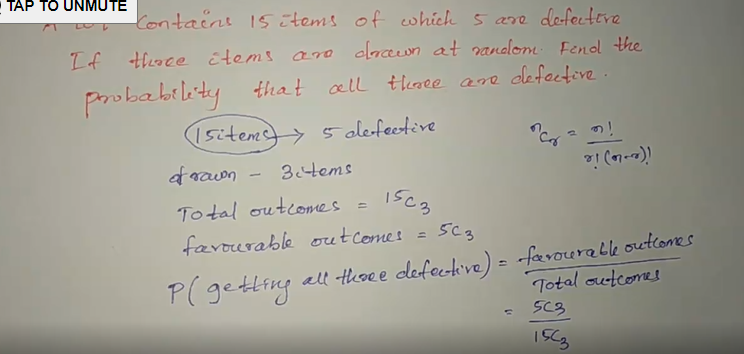 TAP TO UNMUTE
A lot Contains 15 items of which 5 are defective
If three items are drawn at random. Find the
probability that all three are defective.
15 items → 5 defective
drawn - 3 items
Total outcomes = 15C3
favourable outcomes = 5C3
nCr = n! / r!(n-r)!
P(getting all three defective) = favourable outcomes / Total outcomes
= 5C3 / 15C3